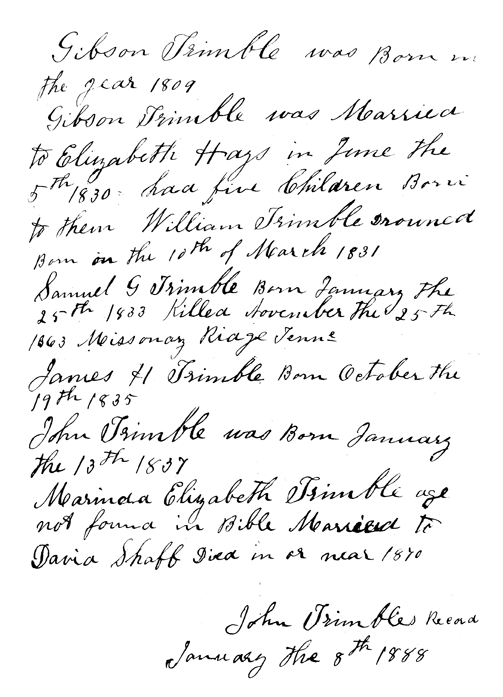 Gibson Trimble was Born in
the year 1809
Gibson Trimble was Married
to Elizabeth Hays in June the
5th 1830 had five Children Born
to them William Trimble Drowned
Born on the 10th of March 1831
Samuel G Trimble Born January the
25th 1833 Killed November the 25th
1863 Missonary Ridge Tenne
James H Trimble Born October the
19th 1835
John Trimble was Born January
the 13th 1837
Marinda Elizabeth Trimble age
not found in Bible Married to
David Shaff Died in or near 1870
John Trimbles Record
January the 8th 1888